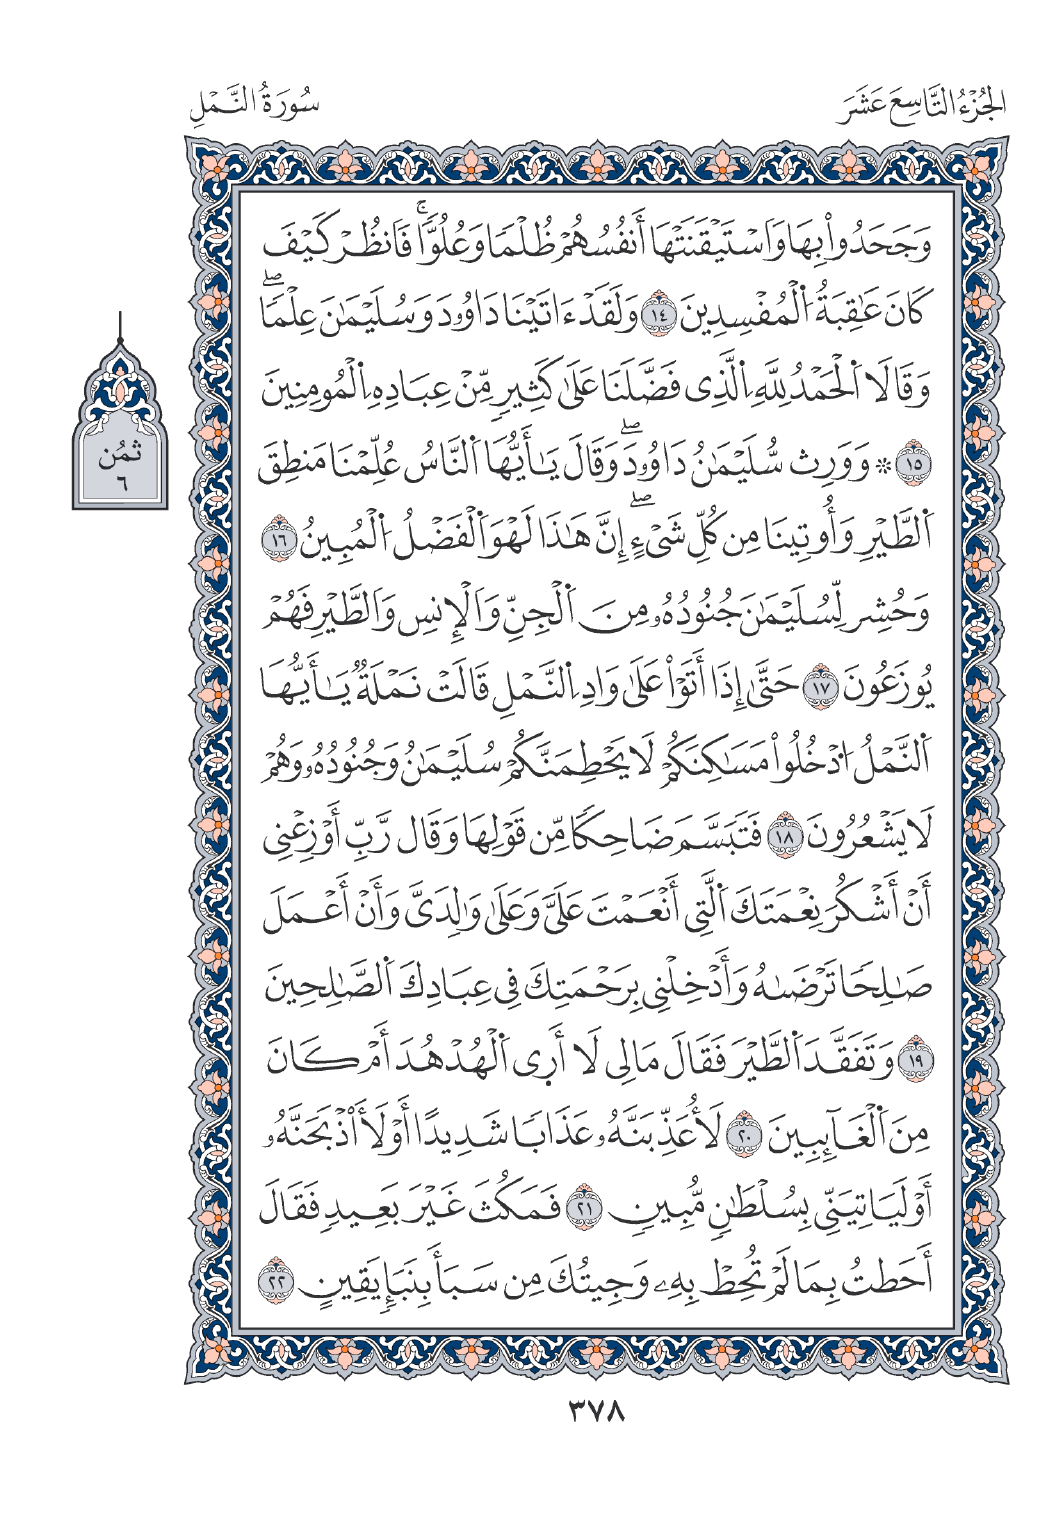 الجُزْءُ التَّاسِعَ عَشَرَ
سُورَةُ النَّمْلِ
وَجَحَدُواْ بِهَا وَاَسْتَيْقَنَتْهَا أَنفُسُهُمْ ظُلْمٗا وَعُلُوّٗاۚ فَانظُرْ كَيْفَ
كَانَ عَٰقِبَةُ اُ۬لْمُفْسِدِينَ ١٤ وَلَقَدْ ءَاتَيْنَا دَاوُۥدَ وَسُلَيْمَٰنَ عِلْمٗاۖ
وَقَالَا اَ۬لْحَمْدُ لِلهِ اِ۬لَّذِي فَضَّلَنَا عَلَىٰ كَثِيرٖ مِّنْ عِبَادِهِ اِ۬لْمُومِنِينَ
١٥ ۞ وَوَرِث سُّلَيْمَٰنُ دَاوُۥدَۖ وَقَالَ يَٰأَيُّهَا اَ۬لنَّاسُ عُلِّمْنَا مَنطِقَ
اَ۬لطَّيْرِ وَأُوتِينَا مِن كُلِّ شَيْءٍۖ إِنَّ هَٰذَا لَهْوَ اَ۬لْفَضْلُ اُ۬لْمُبِينُ ١٦
وَحُشِر لِّسُلَيْمَٰنَ جُنُودُهُۥ مِنَ اَ۬لْجِنِّ وَالْإِنسِ وَالطَّيْرِ فَهُمْ
يُوزَعُونَ ١٧ حَتَّىٰ إِذَا أَتَوْاْ عَلَىٰ وَادِ اِ۬لنَّمْلِ قَالَتْ نَمْلَةٞ يَٰأَيُّهَا
اَ۬لنَّمْلُ اُ۟دْخُلُواْ مَسَٰكِنَكُمْ لَا يَحْطِمَنَّكُمْ سُلَيْمَٰنُ وَجُنُودُهُۥ وَهُمْ
لَا يَشْعُرُونَ ١٨ فَتَبَسَّمَ ضَاحِكٗا مِّن قَوْلِهَا وَقَال رَّبِّ أَوْزِعْنِي
أَنْ أَشْكُرَ نِعْمَتَكَ اَ۬لَّتِي أَنْعَمْتَ عَلَيَّ وَعَلَىٰ وَٰلِدَيَّ وَأَنْ أَعْمَلَ
صَٰلِحٗا تَرْضَىٰهُ وَأَدْخِلْنِي بِرَحْمَتِكَ فِي عِبَادِكَ اَ۬لصَّٰلِحِينَ
١٩ وَتَفَقَّدَ اَ۬لطَّيْرَ فَقَالَ مَالِي لَا أَرَى اَ۬لْهُدْهُدَ أَمْ كَانَ
مِنَ اَ۬لْغَآئِبِينَ ٢٠ لَأُعَذِّبَنَّهُۥ عَذَابٗا شَدِيدًا أَوْ لَأَاْذْبَحَنَّهُۥ
أَوْ لَيَاتِيَنِّي بِسُلْطَٰنٖ مُّبِينٖ ٢١ فَمَكُثَ غَيْرَ بَعِيدٖ فَقَالَ
أَحَطتُ بِمَا لَمْ تُحِطْ بِهِۦ وَجِيتُكَ مِن سَبَأَ بِنَبَإٖ يَقِينٍ ٢٢
ثُمُن
٦
٣٧٨